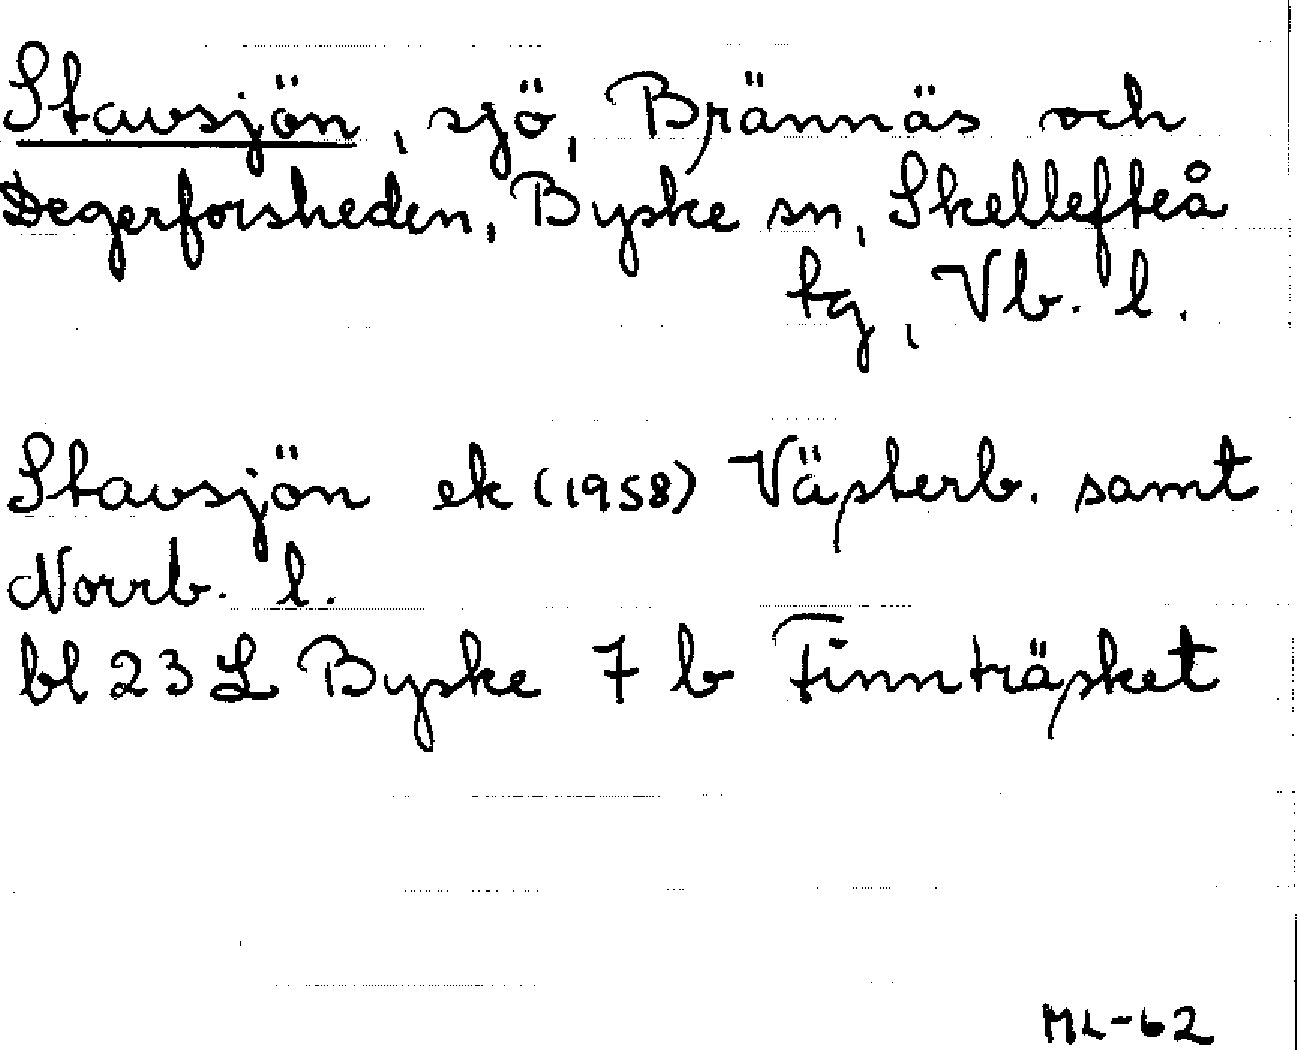 Stavsjön, sjö, Brännäs och
Degerforsheden, Byske sn, Skellefteå
tg, Vb. l.
Stavsjön ek (1958) Västerb. samt
Norrb. l.
bl 23 L Byske 7 b Finnträsket
ML-62